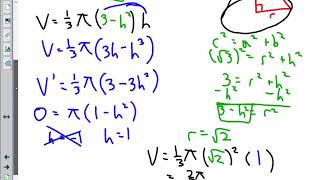 V = 1/3 π (3-h²) h
V = 1/3 π (3h - h³)
V' = 1/3 π (3 - 3h²)
0 = π (1 - h²)
h = -1 h = 1
r
r² = a² + b²
(√3)² = r² + h²
3 = r² + h²
-h² -h²
3 - h² = r²
r = √2
V = 1/3 π (√2)² (1)
= 2π